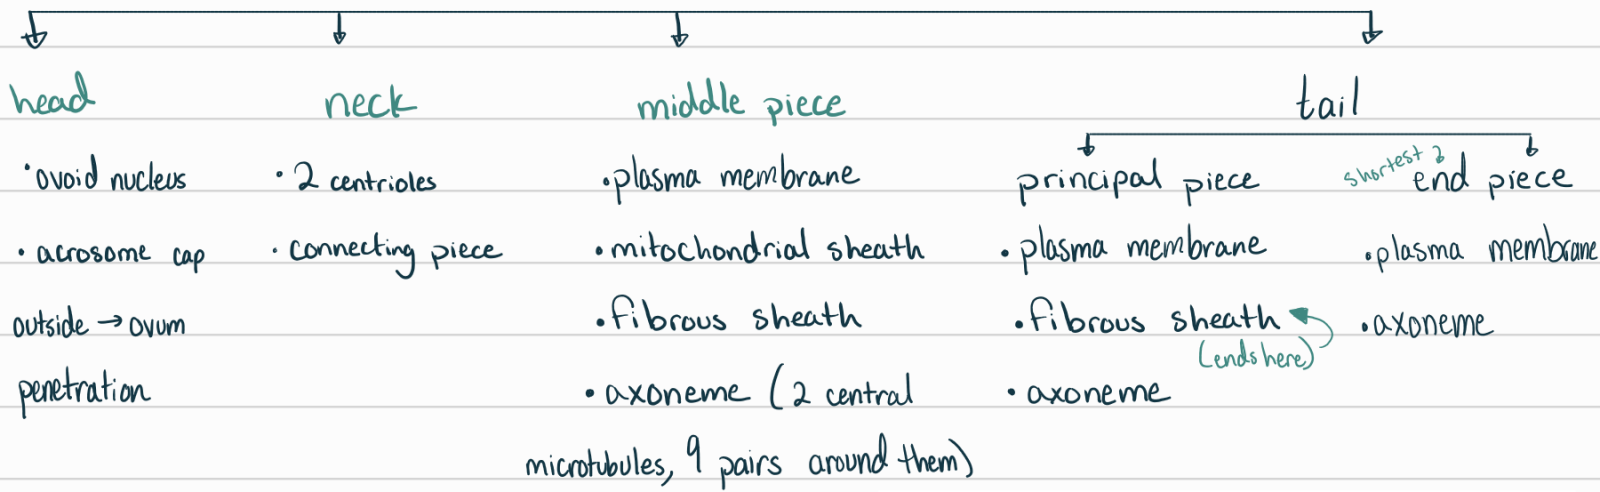 head
• ovoid nucleus
• acrosome cap
outside → ovum
penetration
neck
• 2 centrioles
• connecting piece
middle piece
• plasma membrane
• mitochondrial sheath
• fibrous sheath
• axoneme (2 central
microtubules, 9 pairs around them)
tail
principal piece
• plasma membrane
• fibrous sheath
(ends here)
• axoneme
shortest
end piece
• plasma membrane
• axoneme